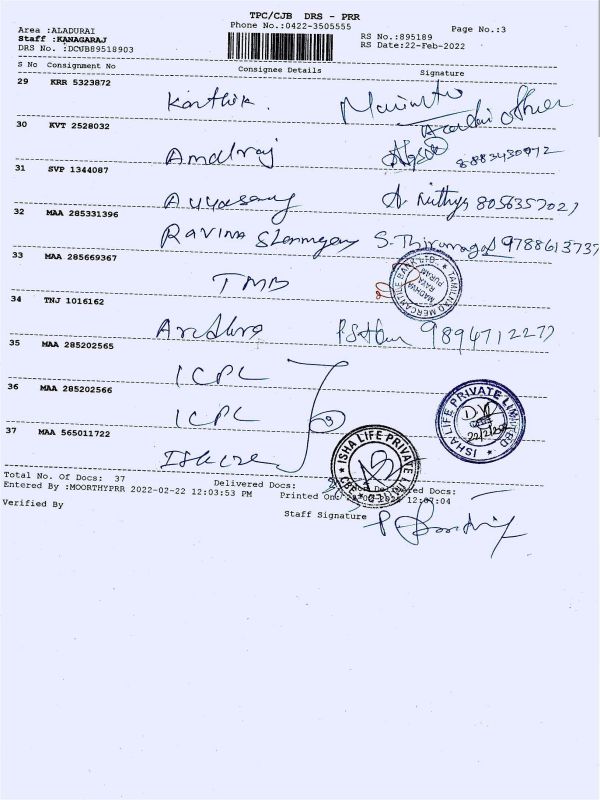 TPC/CJB DRS - PRR
Area :ALADURAI
Phone No.:0422-3505555
Page No.:3
Staff :KANAGARAJ
RS No.:895189
DRS No. :DCUB89518903
RS Date:22-Feb-2022
S No Consignment No Consignee Details Signature
29 KRR 5323872
Karthik.
30 KVT 2528032
Amalraj 8883430972
31 SVP 1344087
Ayyasamy A. Nithya 8056357027
32 MAA 285331396
RAVINA 9788613737
33 MAA 285669367
TMB
TAMILNAD MERCANTILE BANK LTD.
MADHVA
RAYA
PURAM
34 TNJ 1016162
Andhra 9894712277
35 MAA 285202565
ICPL
36 MAA 285202566
ICPL
ISHA LIFE PRIVATE LIMITED
22/2/22
37 MAA 565011722
ISHA LIFE PRIVATE LIMITED
Total No. Of Docs: 37 Delivered Docs: Non Delivered Docs:
Entered By :MOORTHYPRR 2022-02-22 12:03:53 PM Printed On: 12:07:04
Verified By
Staff Signature